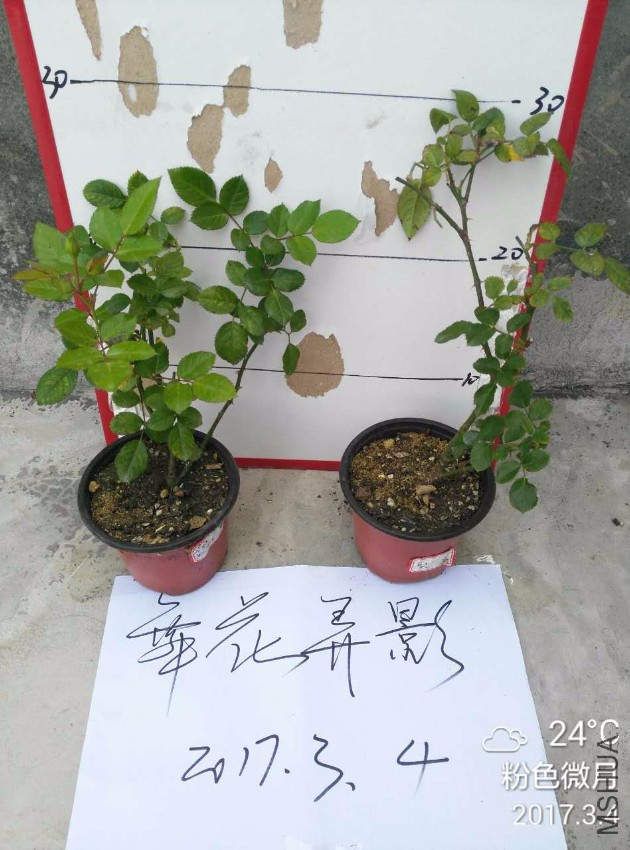 30
30
20
10
舞花弄影
2017.3.4
24°C
粉色微月
2017.3.4
MSHUA